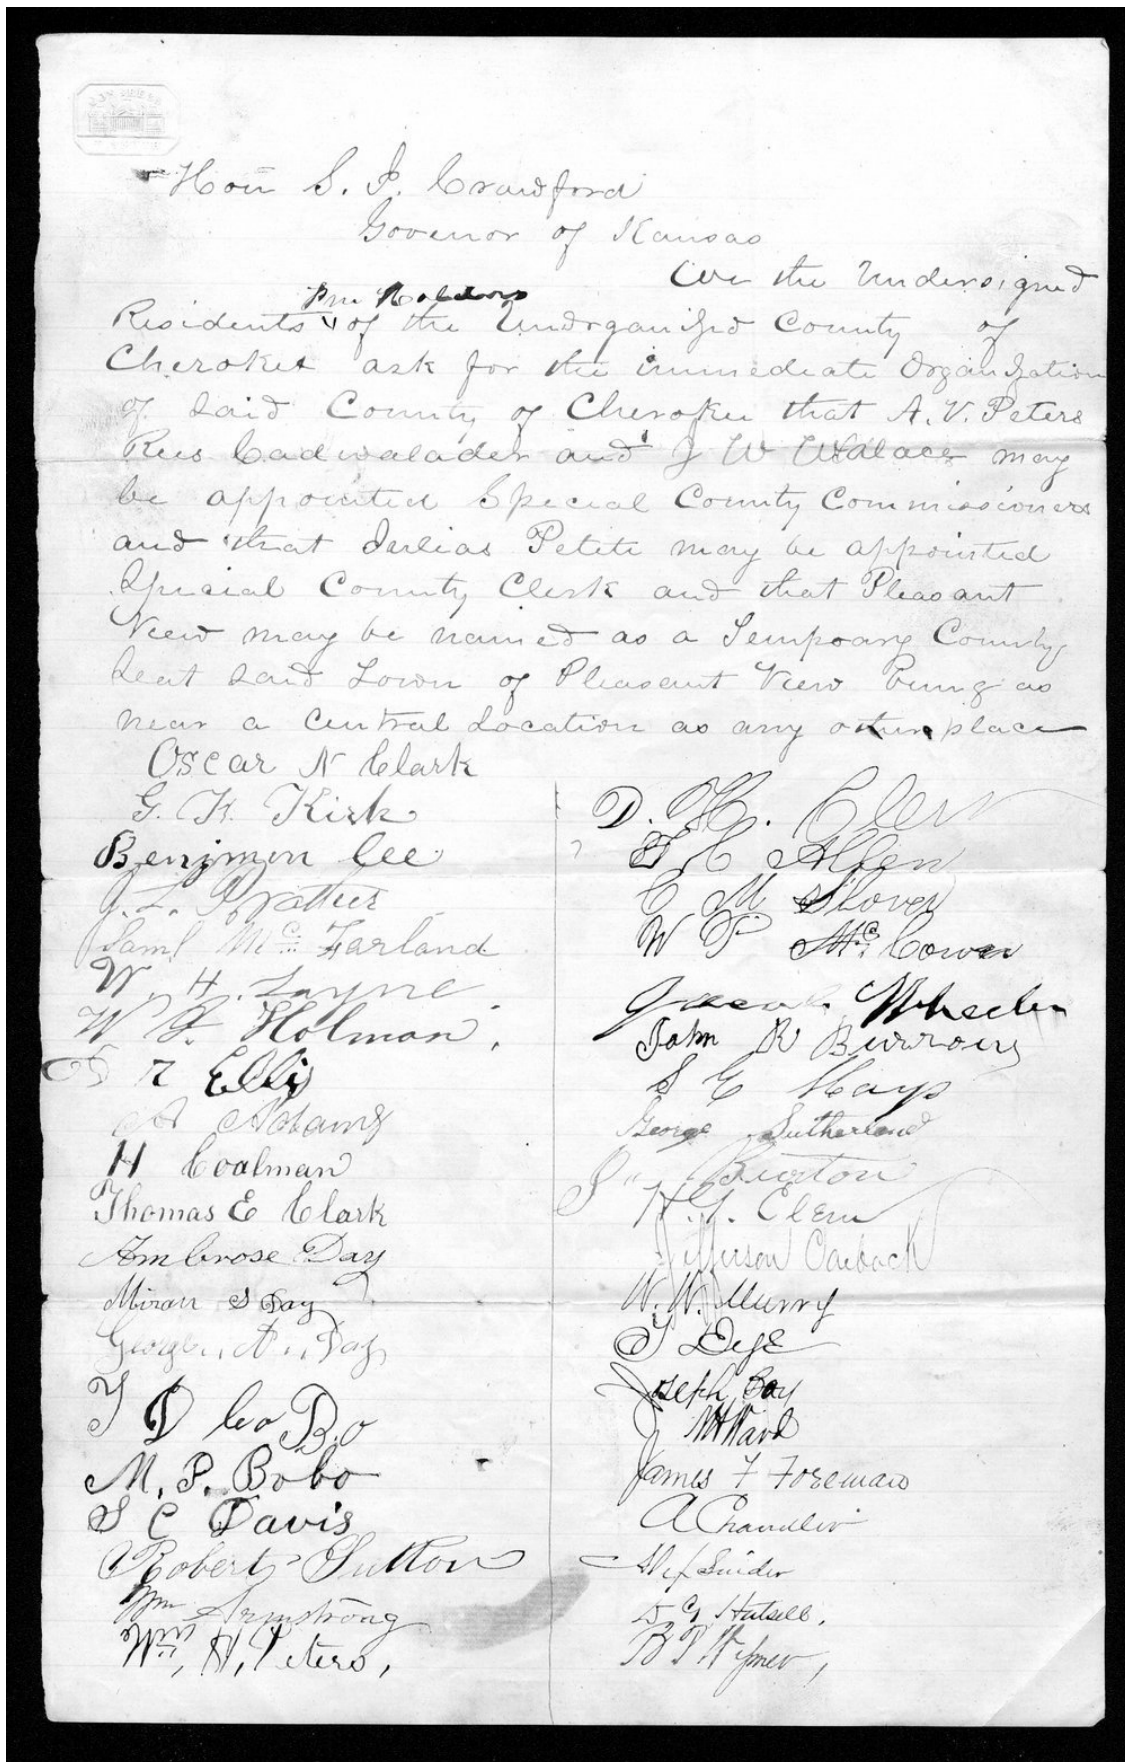 Hon S. J. Crawford
Govenor of Kansas
We the Undersigned
Residents of the Unorganized County of
Cherokee ask for the immediate Organization
of Said County of Cherokee that A. V. Peters
Rees Cadwalader and J W Wallace may
be appointed Special County Commissioners
and that Julias Petite may be appointed
Special County Clerk and that Pleasant
View may be named as a Tempoary County
Seat Said Town of Pleasant View being as
near a Central Location as any other place
Oscar N Clark
G. H. Kirk
Benjmen Cee
J. L. Prather
Saml McFarland
W. H. Layne
W. F. Holman,
Ellis
A Adams
H Coalman
Thomas E Clark
Ambrose Day
S Day
George A. Day
M. P. Bobo
S C Davis
Robert Sutton
Wm Armstrong
Wm, H, Peters,
D. H. Clem
Allen
C M Slover
W P McCowen
Jacob Wheeler
John R Burrows
S E Mays
George Sutherland
Burton
H. G. Clem
Jefferson
W. W. Murry
Joseph Day
Ward
James F Foreman
A Chandler
Alex Snider
D G Hutsell,